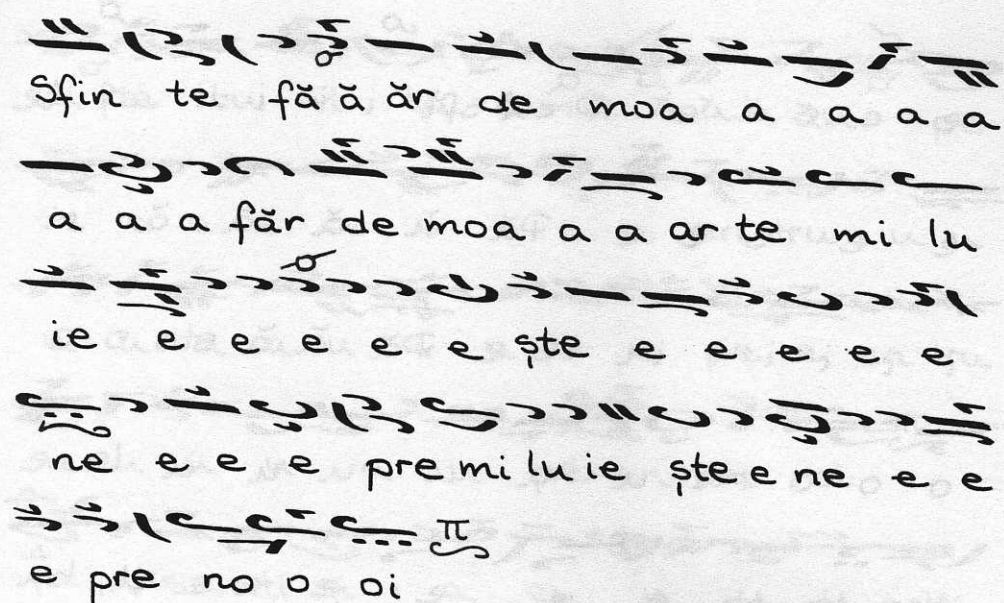 Sfin te fă ă ăr de moa a a a a
a a a făr de moa a a ar te mi lu
ie e e e e e ște e e e e e
ne e e e pre mi lu ie ște e ne e e
π
e pre no o oi